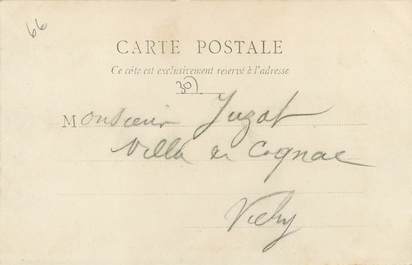 66
CARTE POSTALE
Ce côté est exclusivement réservé à l'adresse
30
Monsieur Juzat
Villa de Cognac
Vichy